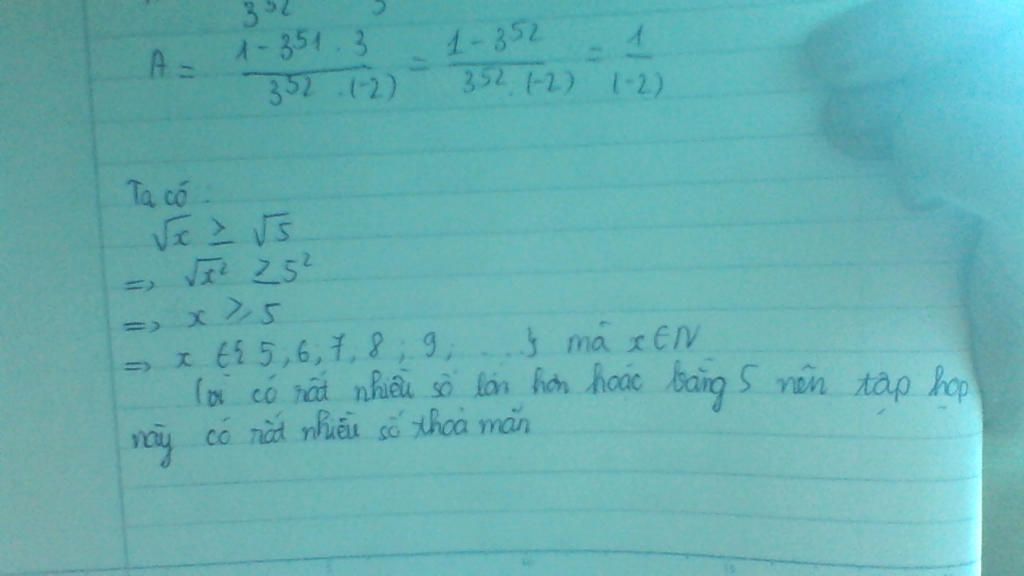 3^52 3
A = (1 - 3^51 . 3)/(3^52 . (-2)) = (1 - 3^52)/(3^52 . (-2)) = 1/(-2)
Ta có :
√x ≥ √5
=> √x² ≥ 5²
=> x ≥ 5
=> x ∈ { 5 , 6 ; 7 , 8 ; 9 ; ... } mã x ∈ N
có rất nhiều số lớn hơn hoặc bằng 5 nên tập hợp
này có rất nhiều số thoả mãn